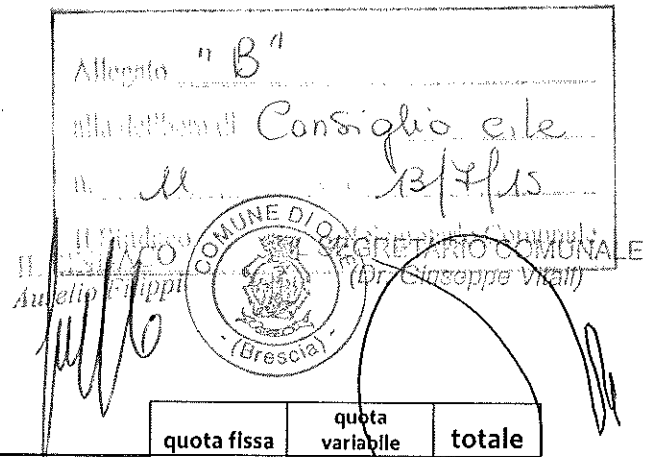 Allegato "B"
alla delibera di Consiglio c.le
n. 11 13/7/15
Il Sindaco Il Segretario Comunale
IL SINDACO IL SEGRETARIO COMUNALE
Aurelio Filippi (Dr. Giuseppe Vitali)
COMUNE DI
(Brescia)
quota fissa quota variabile totale